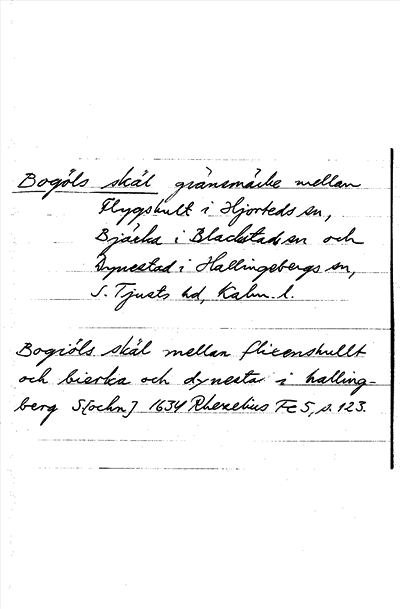 Bogöls skäl gränsmärke mellan
Flygshult i Hjorteds sn,
Bjärka i Blackstad sn och
Dynestad i Hallingebergs sn,
S. Tjusts hd, Kalm. l.
Bogiöls skäl mellan flicenshullt
och bierka och dynesta i halling-
berg S[ochn] 1634 Rhezelius Fc 5, s. 123.